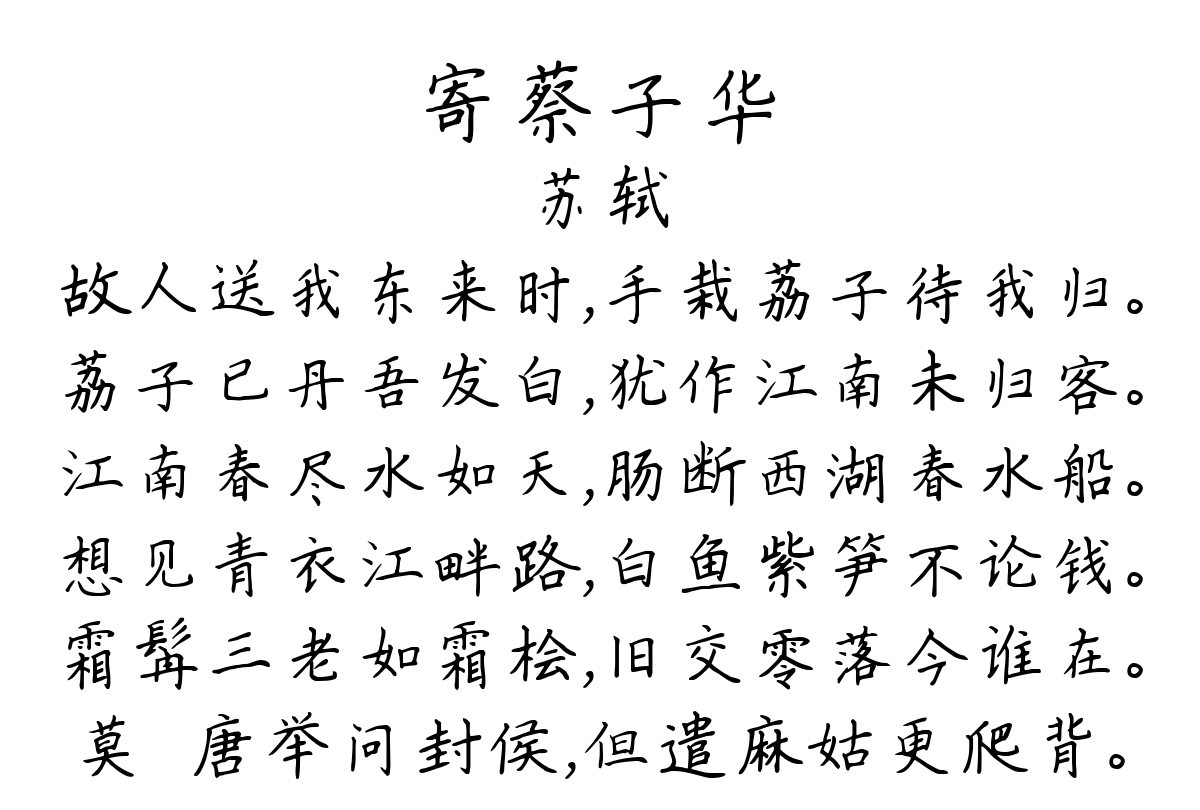 寄蔡子华
苏轼
故人送我东来时,手栽荔子待我归。
荔子已丹吾发白,犹作江南未归客。
江南春尽水如天,肠断西湖春水船。
想见青衣江畔路,白鱼紫笋不论钱。
霜髯三老如霜桧,旧交零落今谁在。
莫 唐举问封侯,但遣麻姑更爬背。